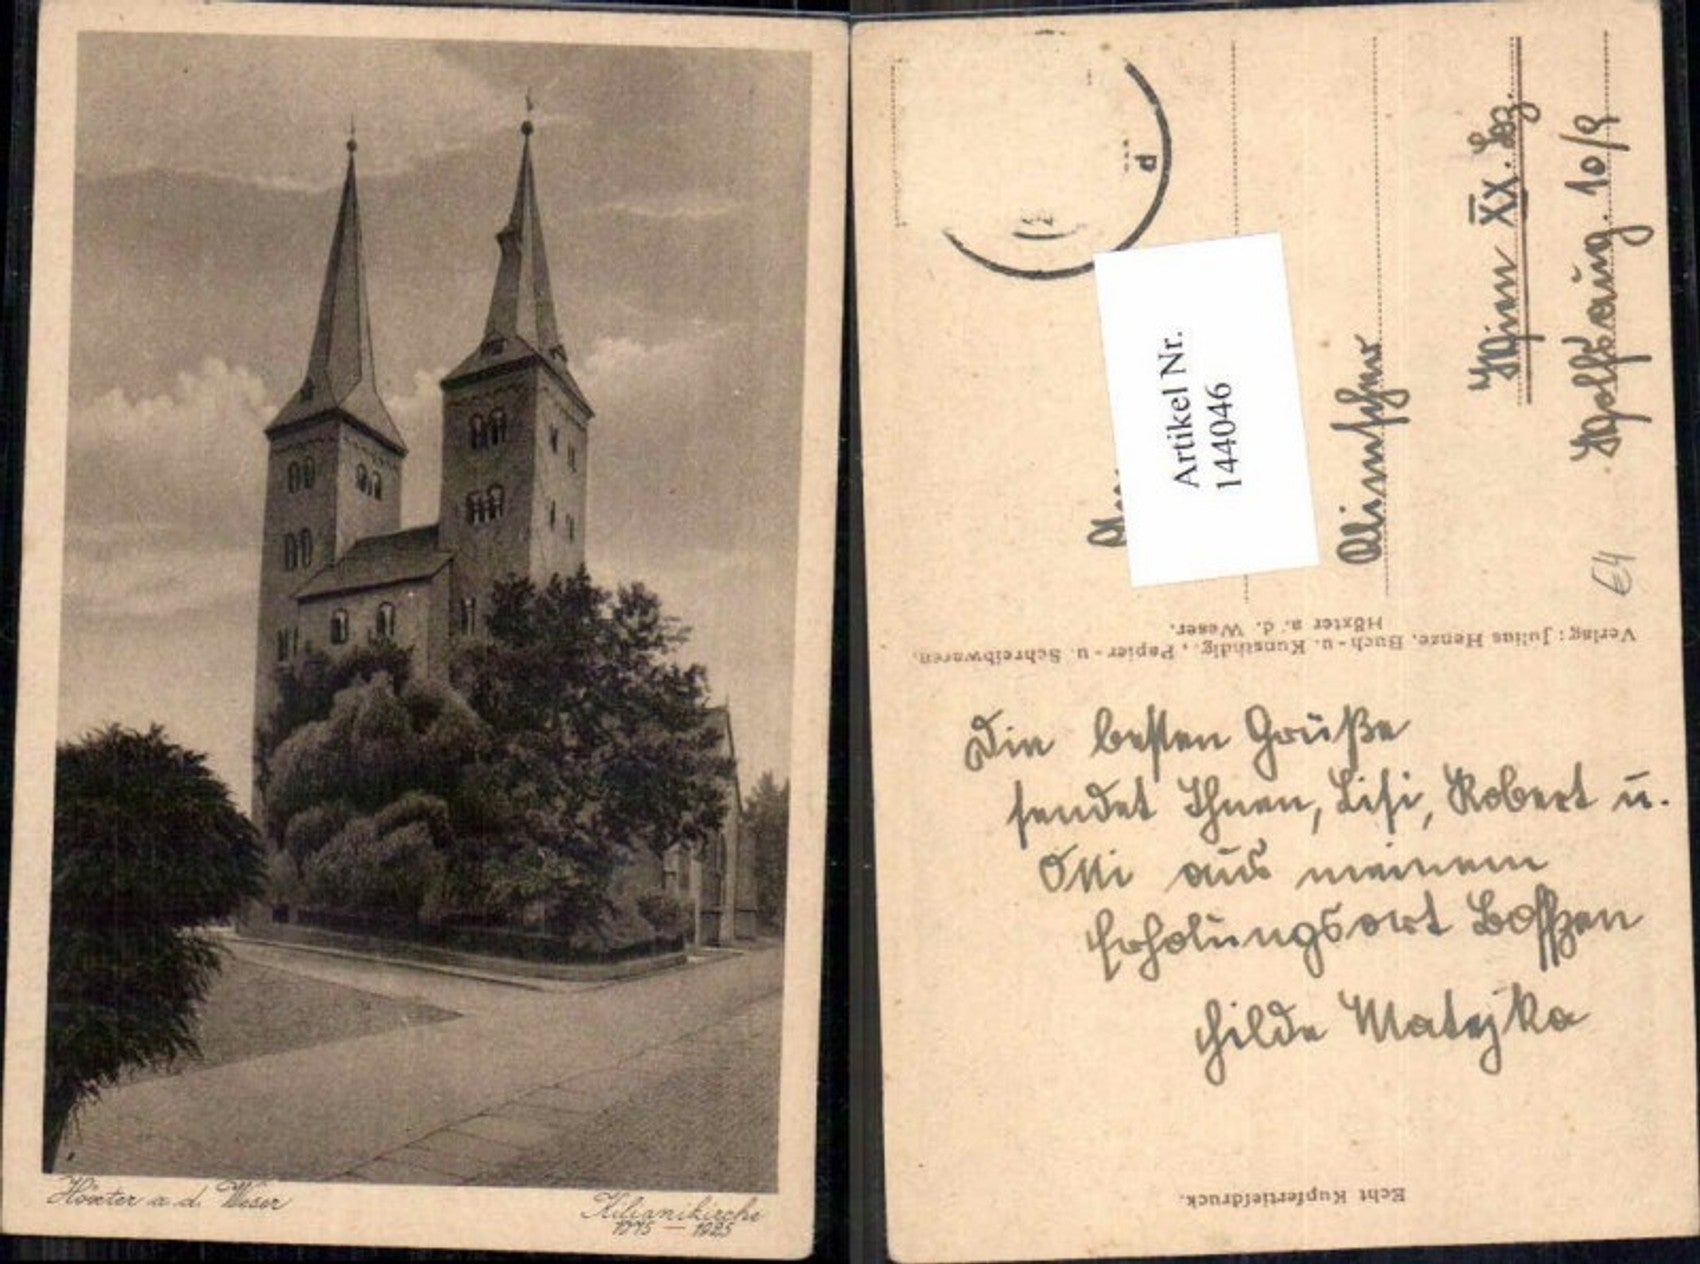 Höxter a. d. Weser
Kilianikirche
1075 — 1925
Artikel Nr.
144046
Wien XX. Bez.
10/9
€4
Verlag: Julius Henze, Buch- u. Kunsthdlg., Papier- u. Schreibwaren,
Höxter a. d. Weser.
Die besten Grüße
sendet Ihnen, Lisi, Robert u.
Otti aus meinem
Erholungsort Boffzen
Hilde Matejka
Echt Kupfertiefdruck.